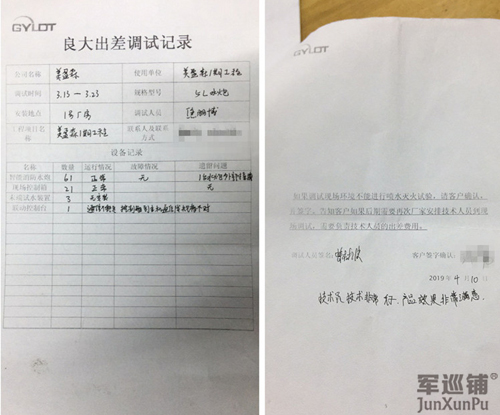 GYLOT
良大出差调试记录
公司名称 美盈森 使用单位 美盈森1期工程
调试时间 3.15 — 3.23 规格型号 5L水炮
安装地点 1号厂房 调试人员
工程项目名称 美盈森1期工程 联系人及联系方式
设备记录
名称 数量 运行情况 故障情况 遗留问题
智能消防水炮 61 正常 无
现场控制箱 21 正常
末端试水装置 3
联动控制台 1
GYLOT
如果调试现场环境不能进行喷水灭火试验，请客户确认，
并签字。告知客户如果后期需要再次厂家安排技术人员到现
场调试，需要负责技术人员的出差费用。
调试人员签名： 客户签字确认：
2019年4月10
技术员技术非常好，产品效果非常满意。
军巡铺®
JunXunPu